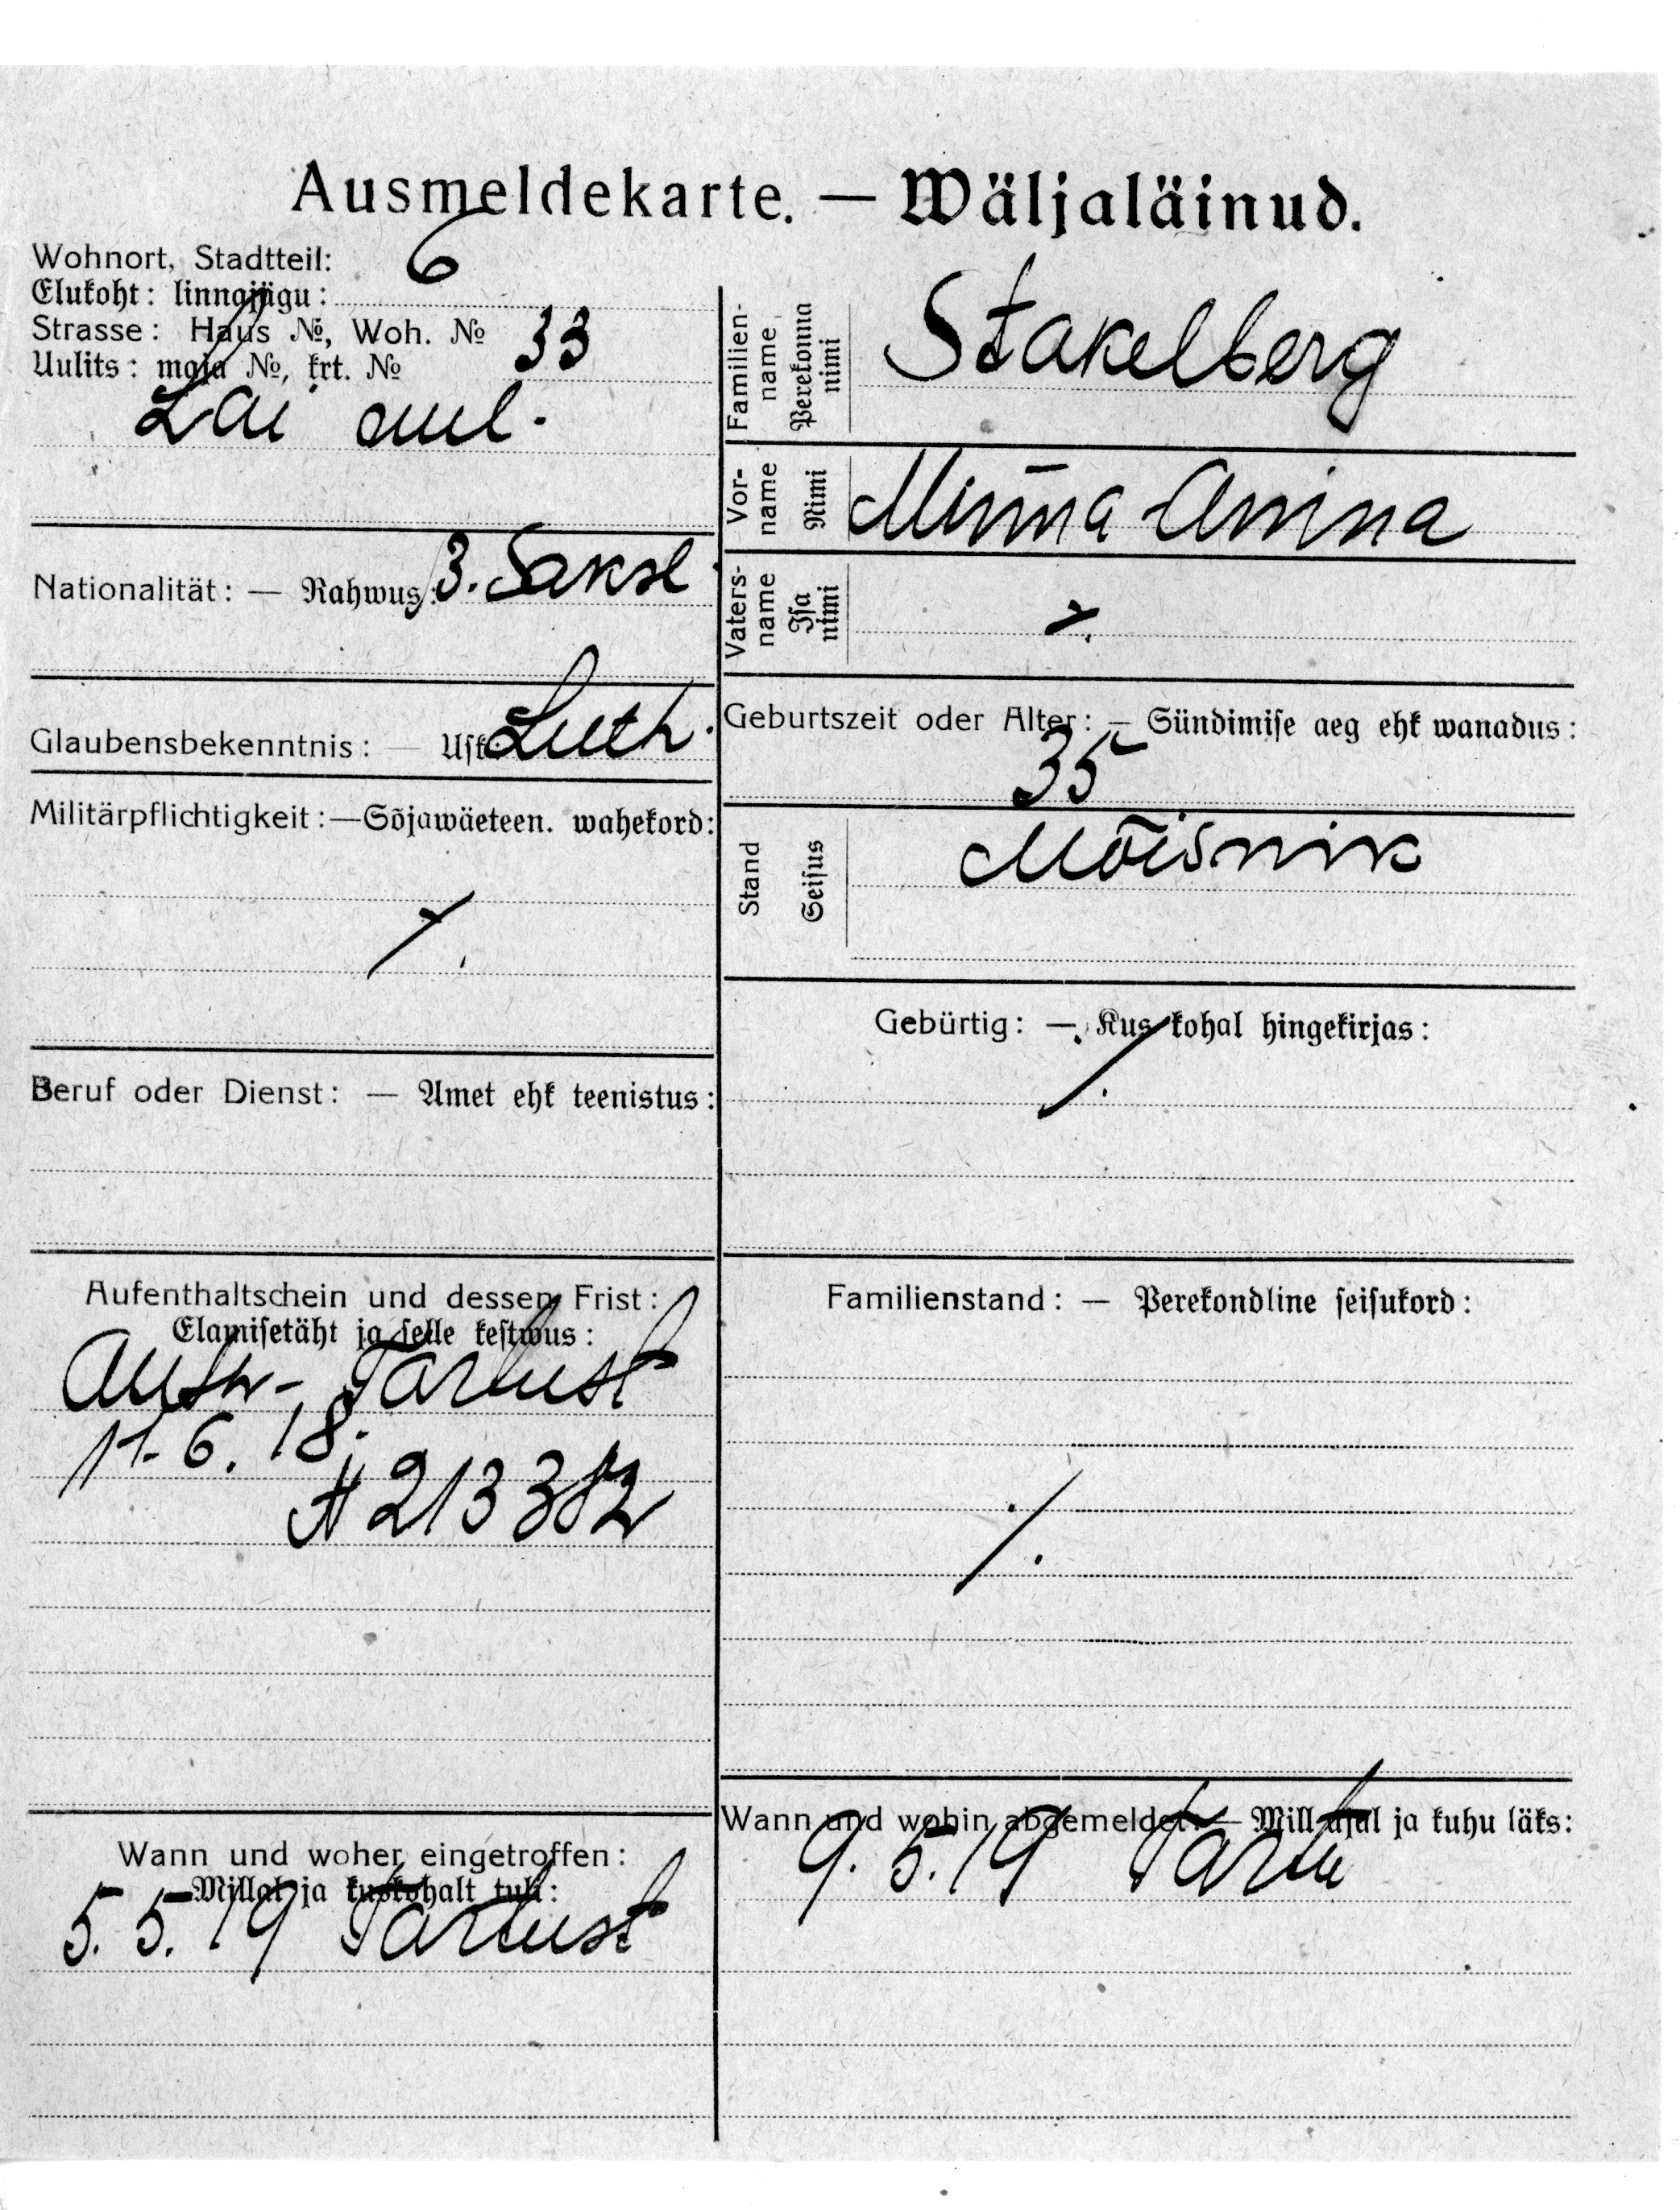 Ausmeldekarte. — Wäljaläinud.
Wohnort, Stadtteil: 6
Elukoht: linnajagu:
Strasse: Haus №, Woh. № 33
Uulits: maja №, krt. №
Lai uul.
Nationalität: — Rahwus: 3. Saksl.
Glaubensbekenntnis: — Usk: Luth.
Militärpflichtigkeit: — Sõjawäeteen. wahekord:
Beruf oder Dienst: — Amet ehk teenistus:
Aufenthaltschein und dessen Frist:
Elamisetäht ja selle kestwus:
Ausw- Tartust
11. 6. 18.
A 213382
Wann und woher eingetroffen:
Millal ja kuskohalt tuli:
5. 5. 19 Tartust
Familien-name Perekonna nimi Stakelberg
Vor-name Nimi Minna Anna
Vaters-name Isa nimi
Geburtszeit oder Alter: — Sündimise aeg ehk wanadus:
35
Stand Seisus Mõisnik
Gebürtig: — Kus kohal hingekirjas:
Familienstand: — Perekondline seisukord:
Wann und wohin abgemeldet: — Millal ja kuhu läks:
9. 5. 19 Tartu